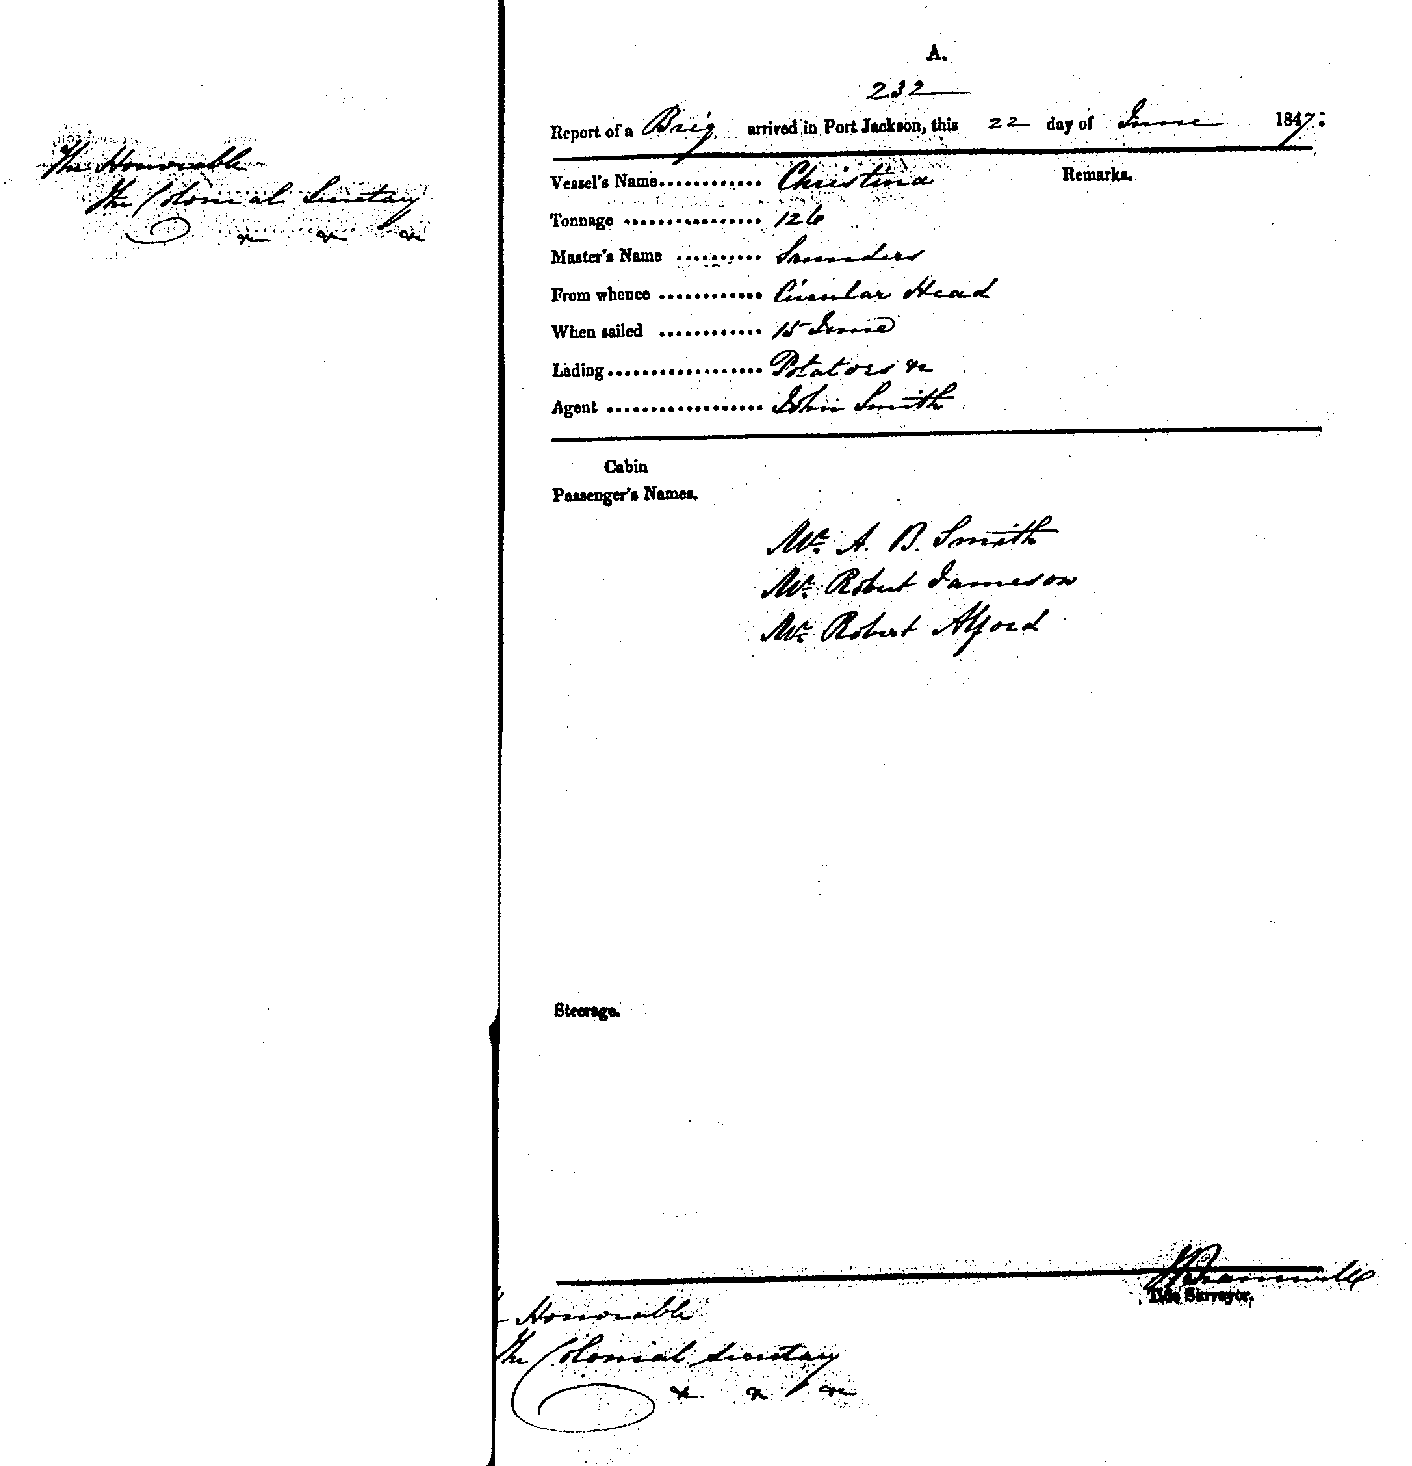 The Honorable
The Colonial Secretary
&c &c &c
A.
232
Report of a Brig arrived in Port Jackson, this 22 day of June 1847:
Vessel's Name............ Christina
Remarks.
Tonnage ................ 126
Master's Name .......... Saunders
From whence ............ Circular Head
When sailed ............ 15 June
Lading.................. Potatoes &c
Agent .................. John Smith
Cabin
Passenger's Names.
Mr. A. B. Smith
Mr. Robert Jameson
Mr. Robert Alford
Steerage.
Tide Surveyor.
Honorable
The Colonial Secretary
&c &c &c